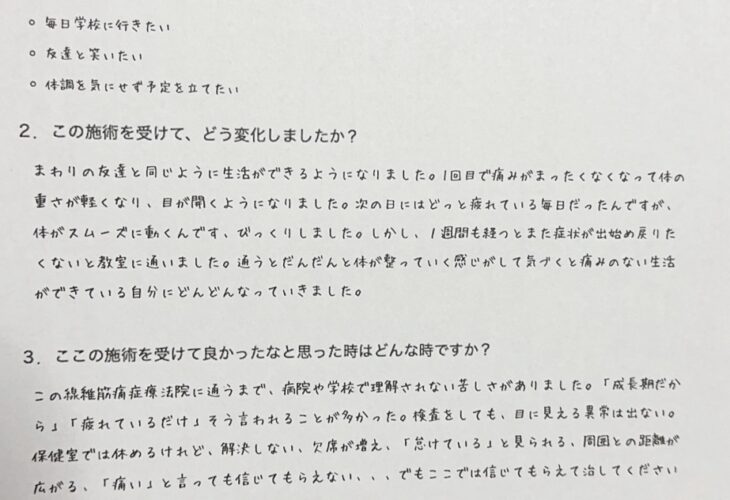 ○ 毎日学校に行きたい
○ 友達と笑いたい
○ 体調を気にせず予定を立てたい
2. この施術を受けて、どう変化しましたか？
まわりの友達と同じように生活ができるようになりました。1回目で痛みがまったくなくなって体の
重さが軽くなり、目が開くようになりました。次の日にはどっと疲れている毎日だったんですが、
体がスムーズに動くんです、びっくりしました。しかし、1週間も経つとまた症状が出始め戻りた
くないと教室に通いました。通うとだんだんと体が整っていく感じがして気づくと痛みのない生活
ができている自分にどんどんなっていきました。
3. ここの施術を受けて良かったなと思った時はどんな時ですか？
この線維筋痛症療法院に通うまで、病院や学校で理解されない苦しさがありました。「成長期だか
ら」「疲れているだけ」そう言われることが多かった。検査をしても、目に見える異常は出ない。
保健室では休めるけれど、解決しない、欠席が増え、「怠けている」と見られる、周囲との距離が
広がる、「痛い」と言っても信じてもらえない、、、でもここでは信じてもらえて治してください